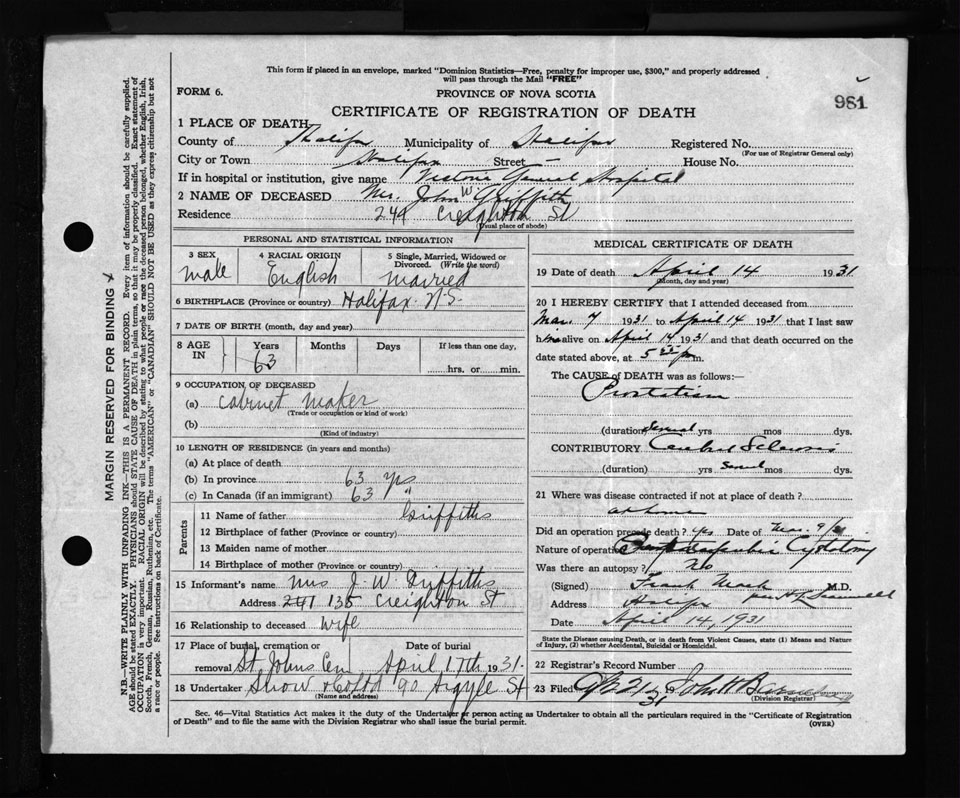 This form if placed in an envelope, marked "Dominion Statistics—Free, penalty for improper use, $300," and properly addressed
will pass through the Mail "FREE"
FORM 6.
PROVINCE OF NOVA SCOTIA
981
CERTIFICATE OF REGISTRATION OF DEATH
1 PLACE OF DEATH
County of Halifax Municipality of Halifax Registered No.
(For use of Registrar General only)
City or Town Halifax Street — House No.
If in hospital or institution, give name Victoria General Hospital
2 NAME OF DECEASED Mr. John W Griffith
Residence 241 Creighton St
(Usual place of abode)
PERSONAL AND STATISTICAL INFORMATION
3 SEX 4 RACIAL ORIGIN 5 Single, Married, Widowed or
Divorced. (Write the word)
male English married
6 BIRTHPLACE (Province or country) Halifax N.S.
7 DATE OF BIRTH (month, day and year)
8 AGE Years Months Days If less than one day,
IN 63 hrs. or min.
9 OCCUPATION OF DECEASED
(a) cabinet maker
(Trade or occupation or kind of work)
(b)
(Kind of industry)
10 LENGTH OF RESIDENCE (in years and months)
(a) At place of death
(b) In province 63 yrs
(c) In Canada (if an immigrant) 63 "
Parents
11 Name of father Griffiths
12 Birthplace of father (Province or country)
13 Maiden name of mother
14 Birthplace of mother (Province or country)
15 Informant's name Mrs J. W. Griffiths
Address 241 135 Creighton St
16 Relationship to deceased wife
17 Place of burial, cremation or Date of burial
removal St Johns Cem April 17th 1931.
18 Undertaker Snow & Co Ltd 90 Argyle St
(Name and address)
MEDICAL CERTIFICATE OF DEATH
19 Date of death April 14 1931
(Month, day and year)
20 I HEREBY CERTIFY that I attended deceased from
Mar. 7 1931 to April 14 1931 that I last saw
him alive on April 14 1931 and that death occurred on the
date stated above, at 5 p m.
The CAUSE of DEATH was as follows:—
Prostatism
(duration) several yrs mos dys.
CONTRIBUTORY Cerebral Sclerosis
(duration) yrs several mos dys.
21 Where was disease contracted if not at place of death?
at home
Did an operation precede death? yes Date of Mar. 9/31
Nature of operation Suprapubic Cystotomy
Was there an autopsy? No
(Signed) Frank Mack M.D.
Address Halifax per
Date April 14, 1931
State the Disease causing Death, or in death from Violent Causes, state (1) Means and Nature
of Injury, (2) whether Accidental, Suicidal or Homicidal.
22 Registrar's Record Number
23 Filed 21 1931 John H
(Division Registrar)
Sec. 46—Vital Statistics Act makes it the duty of the Undertaker or person acting as Undertaker to obtain all the particulars required in the "Certificate of Registration
of Death" and to file the same with the Division Registrar who shall issue the burial permit.
(OVER)
MARGIN RESERVED FOR BINDING
N.B.—WRITE PLAINLY WITH UNFADING INK—THIS IS A PERMANENT RECORD. Every item of information should be carefully supplied.
AGE should be stated EXACTLY. PHYSICIANS should STATE CAUSE OF DEATH in plain terms, so that it may be properly classified. Exact statement of
OCCUPATION is very important. RACIAL ORIGIN will be described by stating to what people or race the deceased person belonged, whether English, Irish,
Scotch, French, German, Russian, Ruthenian, etc. The terms "AMERICAN" or "CANADIAN" SHOULD NOT BE USED as they express citizenship but not
a race or people. See instructions on back of Certificate.